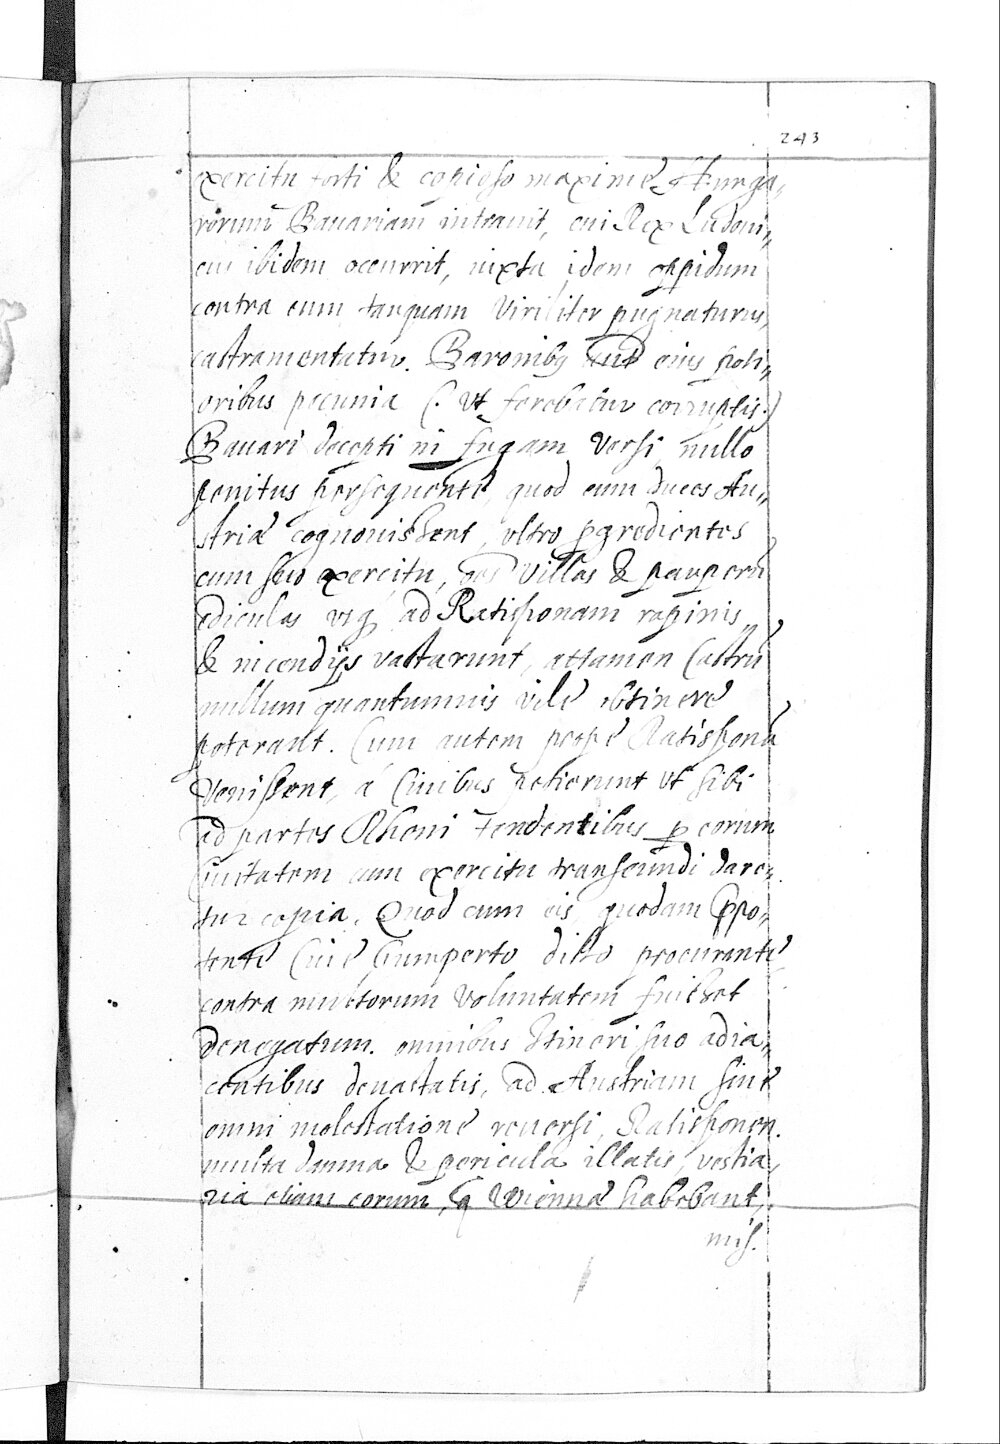 243
exercitu forti & copioso maxime Hunga„
rorum Bauariam intrauit, cui Rex Ludoui„
cus ibidem occurrit, iuxta idem oppidum
contra eum tanquam viriliter pugnaturus,
castramentatur. Baronibq aut eius poti„
oribus pecunia (: vt ferebatur corruptis:)
Bauari decepti in fugam versi nullo
penitus persequente, quod cum duces Au„
striæ cognouissent, vltro pgredientes
cum suo exercitu, villas & pauperū
ediculas vsq ad Ratisponam rapinis
& incendijs vastarunt, attamen Castrū
nullum quantumuis vile obtinere
poterant. Cum autem prope Ratisponā
venissent, á Ciuibus petierunt vt sibi
ad partes Rheni tendentibus p eorum
Ciuitatem cum exercitu transeundi dare„
tur copia. Quod cum eis quodam ppo„
tente Ciue Gumperto dicto procurante
contra multorum voluntatem fuisset
denegatum. omnibus Itineri suo adia„
centibus deuastatis, ad Austriam sine
omni molestatione reuersi, Ratisponen.
multa damna & pericula illatis, vestia„
ria etiam eorum, q Wiennæ habebant,
mis.